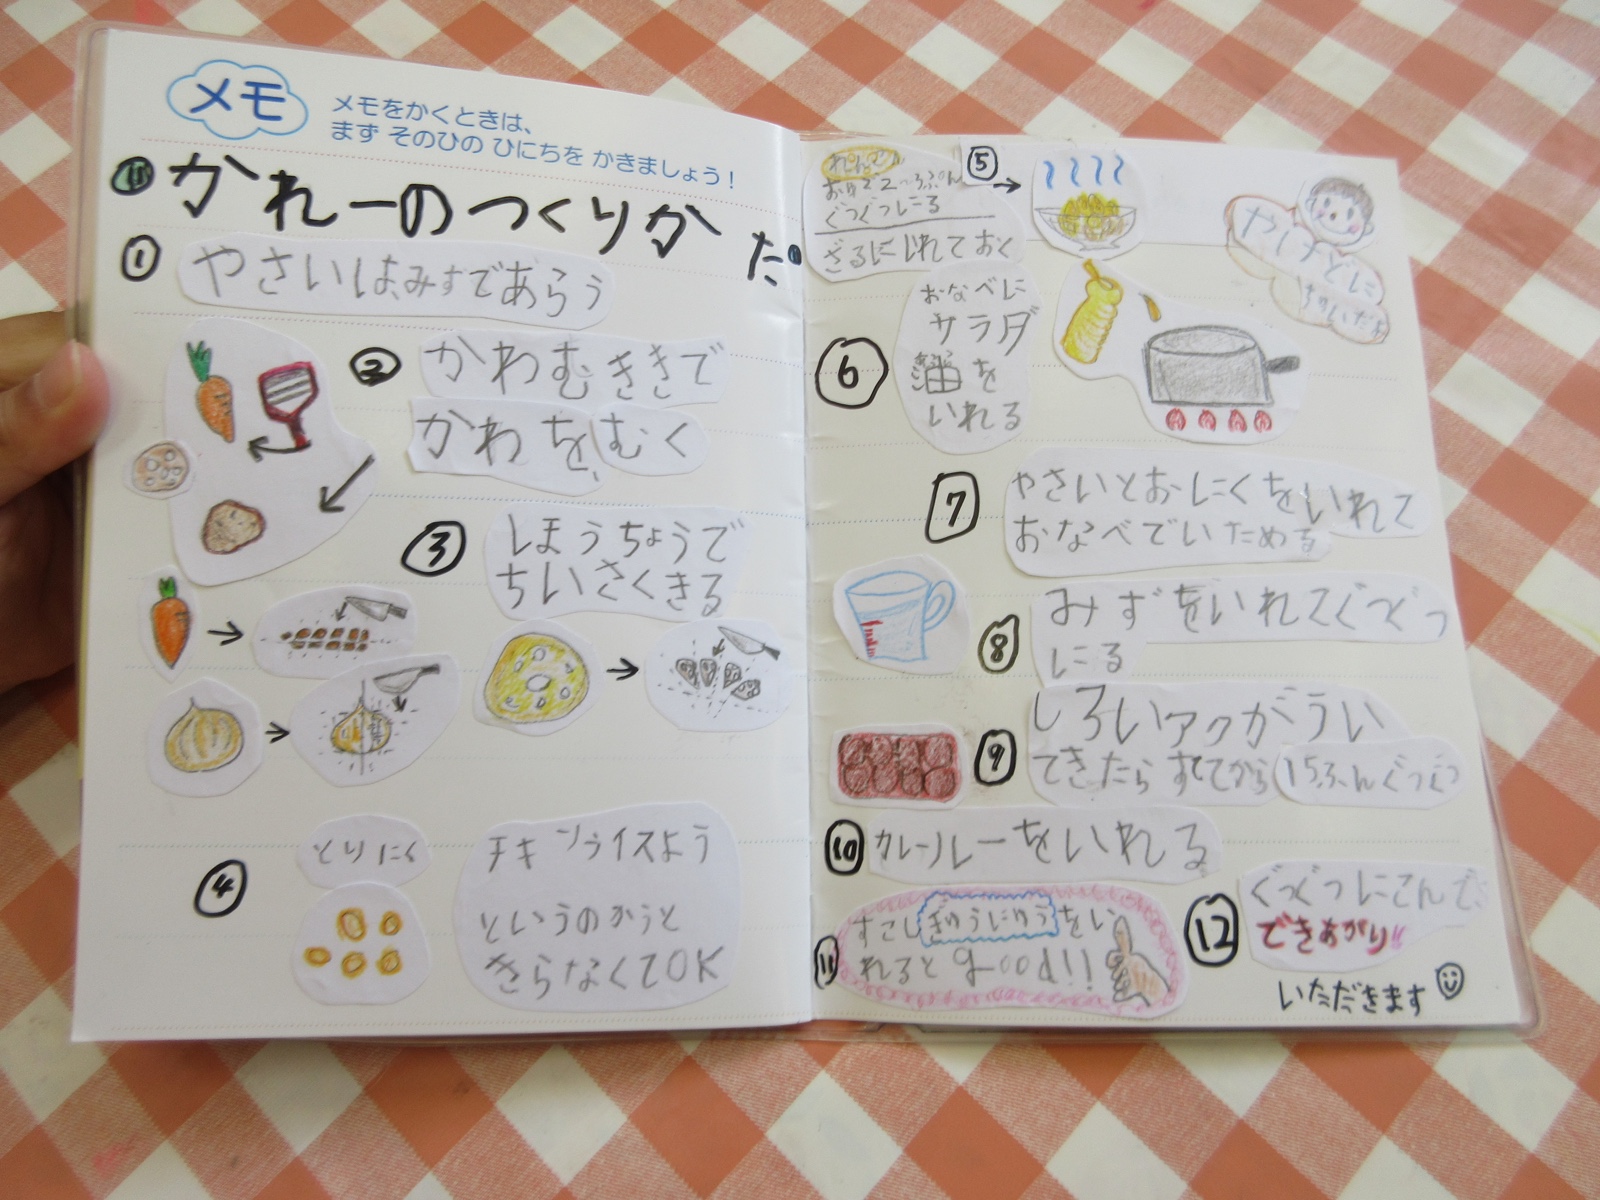 メモ
メモをかくときは、
まず そのひの ひにちを かきましょう!
かれーのつくりかた
① やさいはみずであらう
② かわむききで
かわをむく
③ ほうちょうで
ちいさくきる
④ とりにく
チキンライスよう
というのかうと
きらなくてOK
⑤
おゆで2〜3ぷん
ぐつぐつにる
ざるにいれておく
⑥ おなべに
サラダ
油を
いれる
⑦ やさいとおにくをいれて
おなべでいためる
⑧ みずをいれてぐつぐつ
にる
⑨ しろいアクがうい
てきたらすててから15ふんぐつぐつ
⑩ カレールーをいれる
⑪ すこしぎゅうにゅうをい
れるとgood!!
⑫ ぐつぐつにこんで
できあがり!!
いただきます